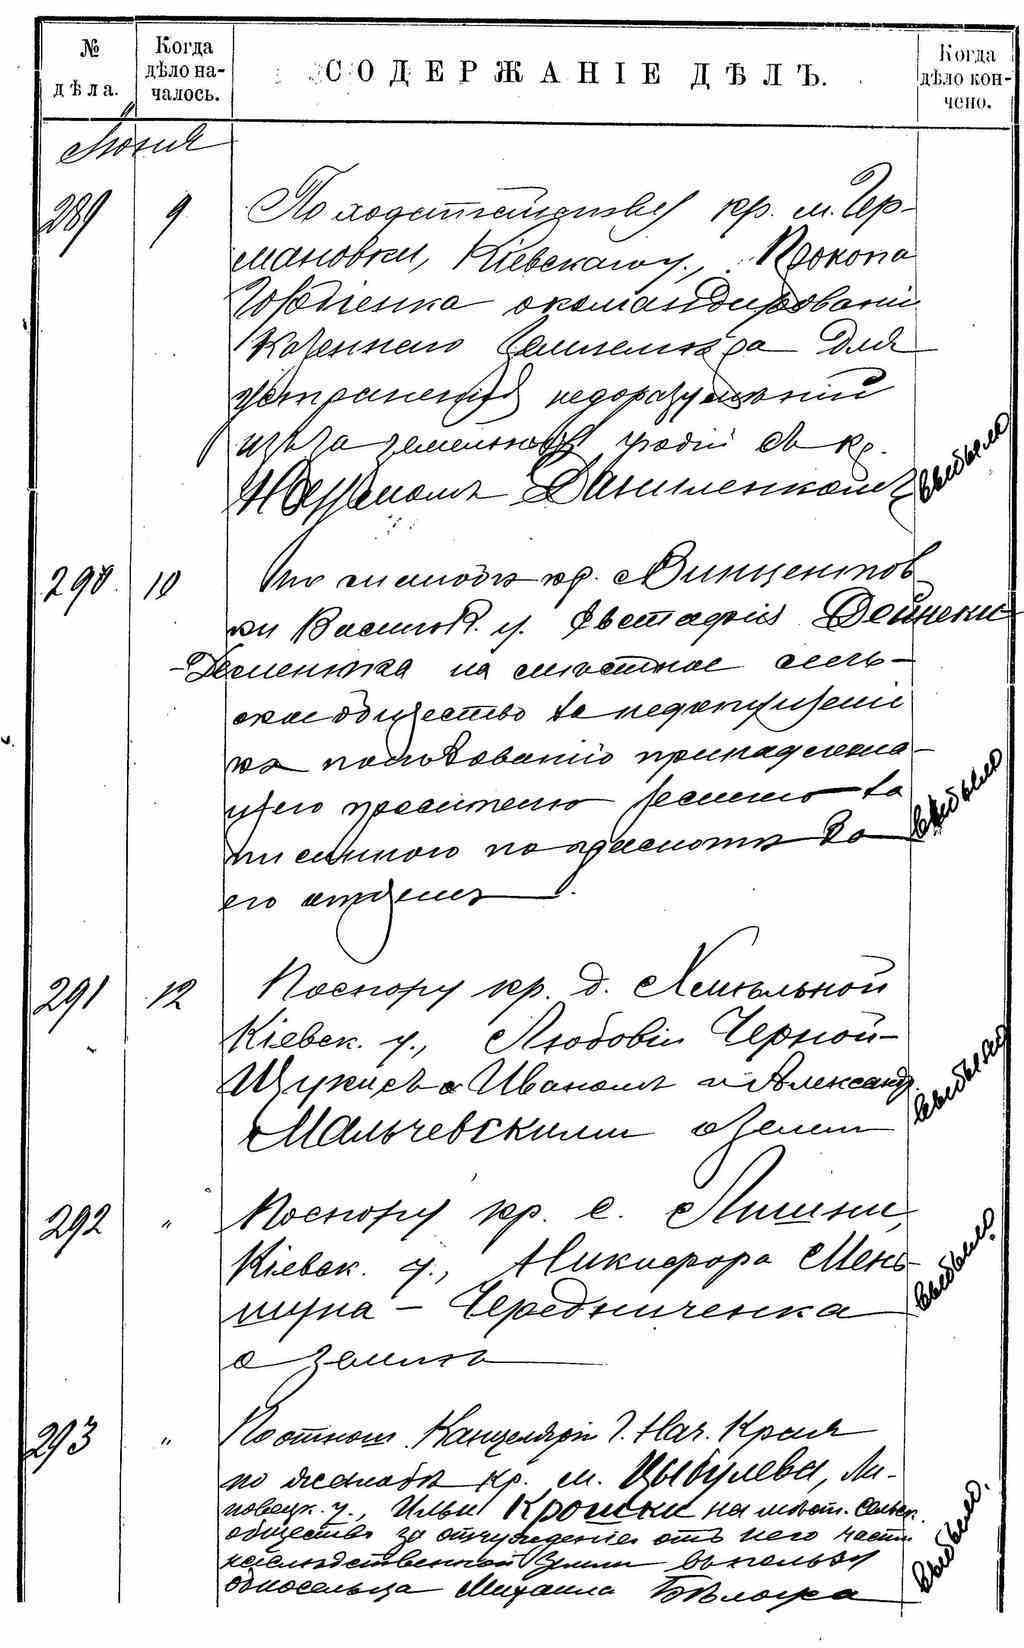 № дѣла.
Когда дѣло началось.
СОДЕРЖАНІЕ ДѢЛЪ.
Когда дѣло кончено.
Июня
289 9 По ходатайству кр. м. Гер-
мановки, Кіевскаго у., Прокопа
Гордіенка о командированіи
казеннаго землемѣра для
устраненія недоразумѣній
изъ за земельной съ кр.
Наумомъ Даниленкомъ
выбыло
290 10 По жалобѣ кр. Винцентов-
ки Васильк. у. Евстафія Дейнеки-
Десменка на мѣстное сель-
ское общество за недопущеніе
къ пользованію принадлежа-
щею просителю землею
его отцемъ.
выбыло
291 12 По спору кр. д. Хмѣльной
Кіевск. у., Любовіи Черной-
Щукисъ Иваномъ и Александ.
Мальчевскими о земли
выбыло
292 " По спору кр. с. Лишни,
Кіевск. у., Никифора Мень-
шуна - Чередниченка
о землѣ
выбыло
293 " По отнош. Канцеляріи Г. Нач. Края
по жалобѣ кр. м. Цыбулева, Ли-
повецк. у., Ильи Крошки на мѣст. сельск.
общество за отчужденіе отъ него части
наслѣдственной земли въ пользу
односельца Михаила Бѣлоуса
выбыло.